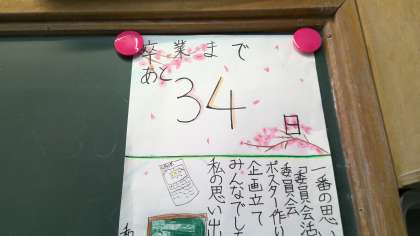 卒業まで
あと
34
日
一番の思い
「委員会活
委員会
ポスター作り
企画立て
みんなでし
私の思い出